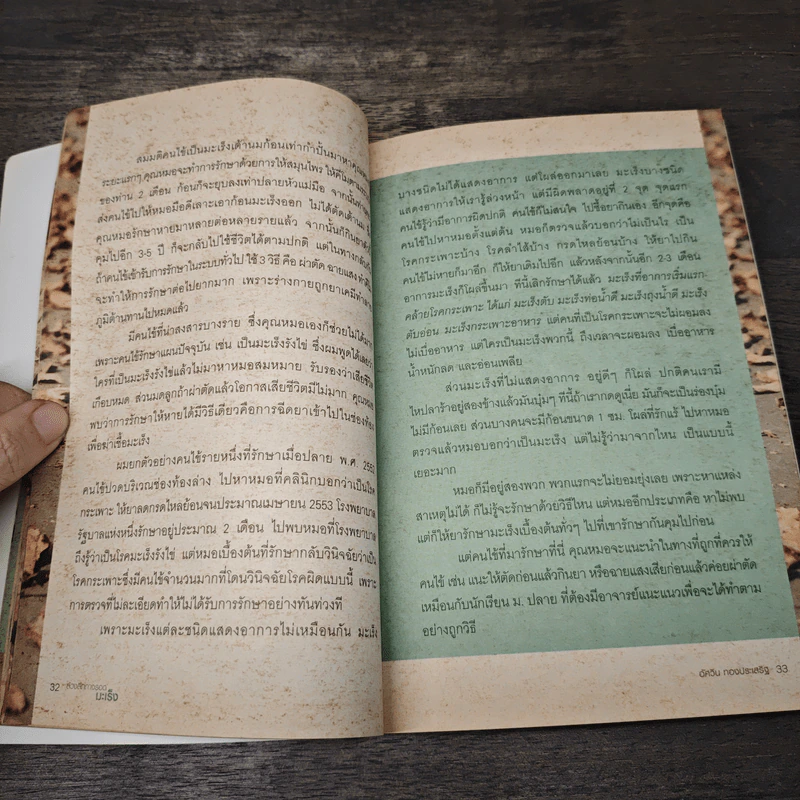 สมมติคนไข้เป็นมะเร็งเต้านมก้อนเท่ากำปั้นมาหาคุณหมอ
ระยะแรกๆ คุณหมอจะทำการรักษาด้วยการให้สมุนไพร ให้ดีไม่ตาม
ของท่าน 2 เดือน ก้อนก็จะยุบลงเท่าปลายหัวแม่มือ จากนั้นท่าน
ส่งคนไข้ไปให้หมอมือดีเลาะเอาก้อนมะเร็งออก ไม่ได้ตัดเต้านม
คุณหมอรักษาหายมาหลายต่อหลายรายแล้ว จากนั้นก็กินยา
คุมไปอีก 3-5 ปี ก็จะกลับไปใช้ชีวิตได้ตามปกติ แต่ในทางกลับกัน
ถ้าคนไข้เข้ารับการรักษาในระบบทั่วไป ใช้ 3 วิธี คือ ผ่าตัด ฉายแสง ทำคีโม
จะทำให้การรักษาต่อไปยากมาก เพราะร่างกายถูกยาเคมีทำลาย
ภูมิต้านทานไปหมดแล้ว
มีคนไข้ที่น่าสงสารบางราย ซึ่งคุณหมอเองก็ช่วยไม่ได้มาก
เพราะคนไข้รักษาแผนปัจจุบัน เช่น เป็นมะเร็งรังไข่ ซึ่งผมพูดได้เลยว่า
ใครที่เป็นมะเร็งรังไข่แล้วไม่มาหาหมอสมหมาย รับรองว่าเสียชีวิต
เกือบหมด ส่วนมดลูกถ้าผ่าตัดแล้วโอกาสเสียชีวิตมีไม่มาก คุณหมอ
พบว่าการรักษาให้หายได้มีวิธีเดียวคือการฉีดยาเข้าไปในช่องท้อง
เพื่อฆ่าเชื้อมะเร็ง
ผมยกตัวอย่างคนไข้รายหนึ่งที่รักษาเมื่อปลาย พ.ศ. 2552
คนไข้ปวดบริเวณช่องท้องล่าง ไปหาหมอที่คลินิกบอกว่าเป็นโรค
กระเพาะ ให้ยาลดกรดไหลย้อนจนประมาณเมษายน 2553 โรงพยาบาล
รัฐบาลแห่งหนึ่งรักษาอยู่ประมาณ 2 เดือน ไปพบหมอที่โรงพยาบาล
ถึงรู้ว่าเป็นโรคมะเร็งรังไข่ แต่หมอเบื้องต้นที่รักษากลับวินิจฉัยว่าเป็น
โรคกระเพาะซึ่งมีคนไข้จำนวนมากที่โดนวินิจฉัยโรคผิดแบบนี้ เพราะ
การตรวจที่ไม่ละเอียดทำให้ไม่ได้รับการรักษาอย่างทันท่วงที
เพราะมะเร็งแต่ละชนิดแสดงอาการไม่เหมือนกัน มะเร็ง
32
มะเร็ง
บางชนิดไม่ได้แสดงอาการ แต่โผล่ออกมาเลย มะเร็งบางชนิด
แสดงอาการให้เรารู้ล่วงหน้า แต่มีผิดพลาดอยู่ที่ 2 จุด จุดแรก
คนไข้รู้ว่ามีอาการผิดปกติ คนไข้ก็ไม่สนใจ ไปซื้อยากินเอง อีกจุดคือ
คนไข้ไปหาหมอตั้งแต่ต้น หมอก็ตรวจแล้วบอกว่าไม่เป็นไร เป็น
โรคกระเพาะบ้าง โรคลำไส้บ้าง กรดไหลย้อนบ้าง ให้ยาไปกิน
คนไข้ไม่หายก็มาอีก ก็ให้ยาเดิมไปอีก แล้วหลังจากนั้นอีก 2-3 เดือน
อาการมะเร็งก็โผล่ขึ้นมา ทีนี้เลิกรักษาได้แล้ว มะเร็งที่อาการเริ่มแรก
คล้ายโรคกระเพาะ ได้แก่ มะเร็งตับ มะเร็งท่อน้ำดี มะเร็งถุงน้ำดี มะเร็ง
ตับอ่อน มะเร็งกระเพาะอาหาร แต่คนที่เป็นโรคกระเพาะจะไม่ผอม
ไม่เบื่ออาหาร แต่ใครเป็นมะเร็งพวกนี้ ถึงเวลาจะผอมลง เบื่ออาหาร
น้ำหนักลด และอ่อนเพลีย
ส่วนมะเร็งที่ไม่แสดงอาการ อยู่ดีๆ ก็โผล่ ปกติคนเรามี
ไหปลาร้าอยู่สองข้างแล้วมันบุ๋มๆ ทีนี้ถ้าเรากดดูเนี่ย มันก็จะเป็นร่องบุ๋ม
ไม่มีก้อนเลย ส่วนบางคนจะมีก้อนขนาด 1 ซม. โผล่ที่รักแร้ ไปหาหมอ
ตรวจแล้วหมอบอกว่าเป็นมะเร็ง แต่ไม่รู้ว่ามาจากไหน เป็นแบบนี้
เยอะมาก
หมอก็มีอยู่สองพวก พวกแรกจะไม่ยอมยุ่งเลย เพราะหาแหล่ง
สาเหตุไม่ได้ ก็ไม่รู้จะรักษาด้วยวิธีไหน แต่หมออีกประเภทคือ หาไม่พบ
แต่ก็ให้ยารักษามะเร็งเบื้องต้นทั่วๆ ไปที่เขารักษากันคุมไปก่อน
แต่คนไข้ที่มารักษาที่นี่ คุณหมอจะแนะนำในทางที่ถูกที่ควรให้
คนไข้ เช่น แนะให้ตัดก่อนแล้วกินยา หรือฉายแสงเสียก่อนแล้วค่อยผ่าตัด
เหมือนกับนักเรียน ม. ปลาย ที่ต้องมีอาจารย์แนะแนวเพื่อจะได้ทำตาม
อย่างถูกวิธี
อัศวิน ทองประเสริฐ 33